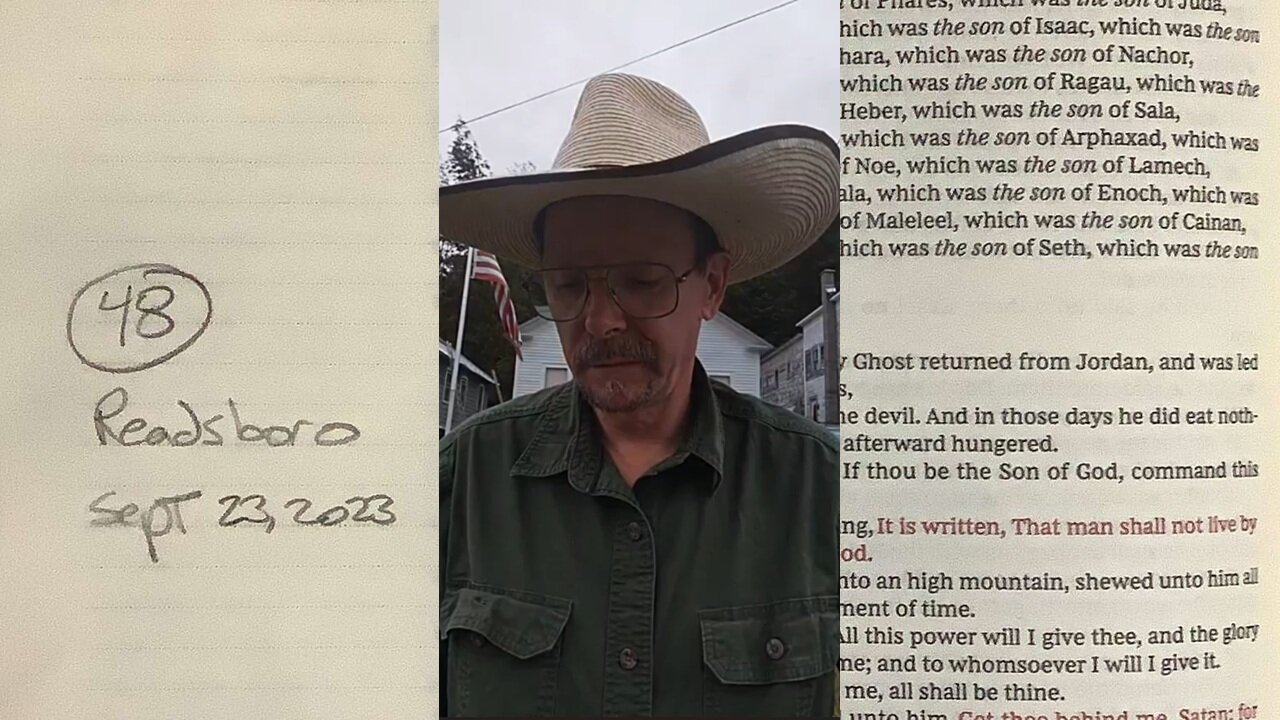 48
Readsboro
Sept 23, 2023
of Phares, which was the son of Juda,
hich was the son of Isaac, which was the son
hara, which was the son of Nachor,
which was the son of Ragau, which was the
Heber, which was the son of Sala,
which was the son of Arphaxad, which was
f Noe, which was the son of Lamech,
ala, which was the son of Enoch, which was
of Maleleel, which was the son of Cainan,
hich was the son of Seth, which was the son
y Ghost returned from Jordan, and was led
s,
he devil. And in those days he did eat noth-
afterward hungered.
If thou be the Son of God, command this
ng, It is written, That man shall not live by
od.
nto an high mountain, shewed unto him all
ment of time.
All this power will I give thee, and the glory
me; and to whomsoever I will I give it.
me, all shall be thine.
unto him, Get thee behind me, Satan: for